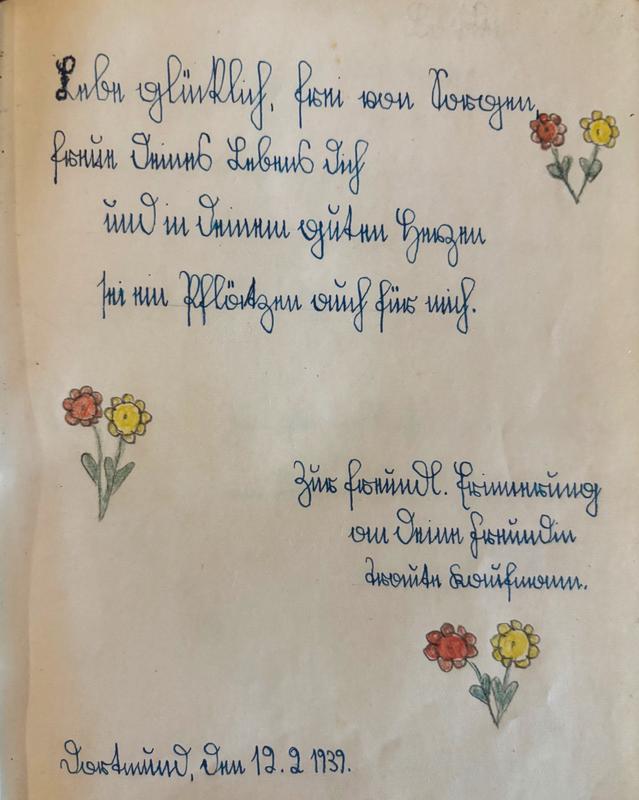 Lebe glücklich, frei von Sorgen,
freue Deines Lebens Dich
und in Deinem guten Herzen
sei ein Plätzen auch für mich.
Zur freundl. Erinnerung
an Deine Freundin
Traute Kaufmann.
Dortmund, den 12.2 1939.